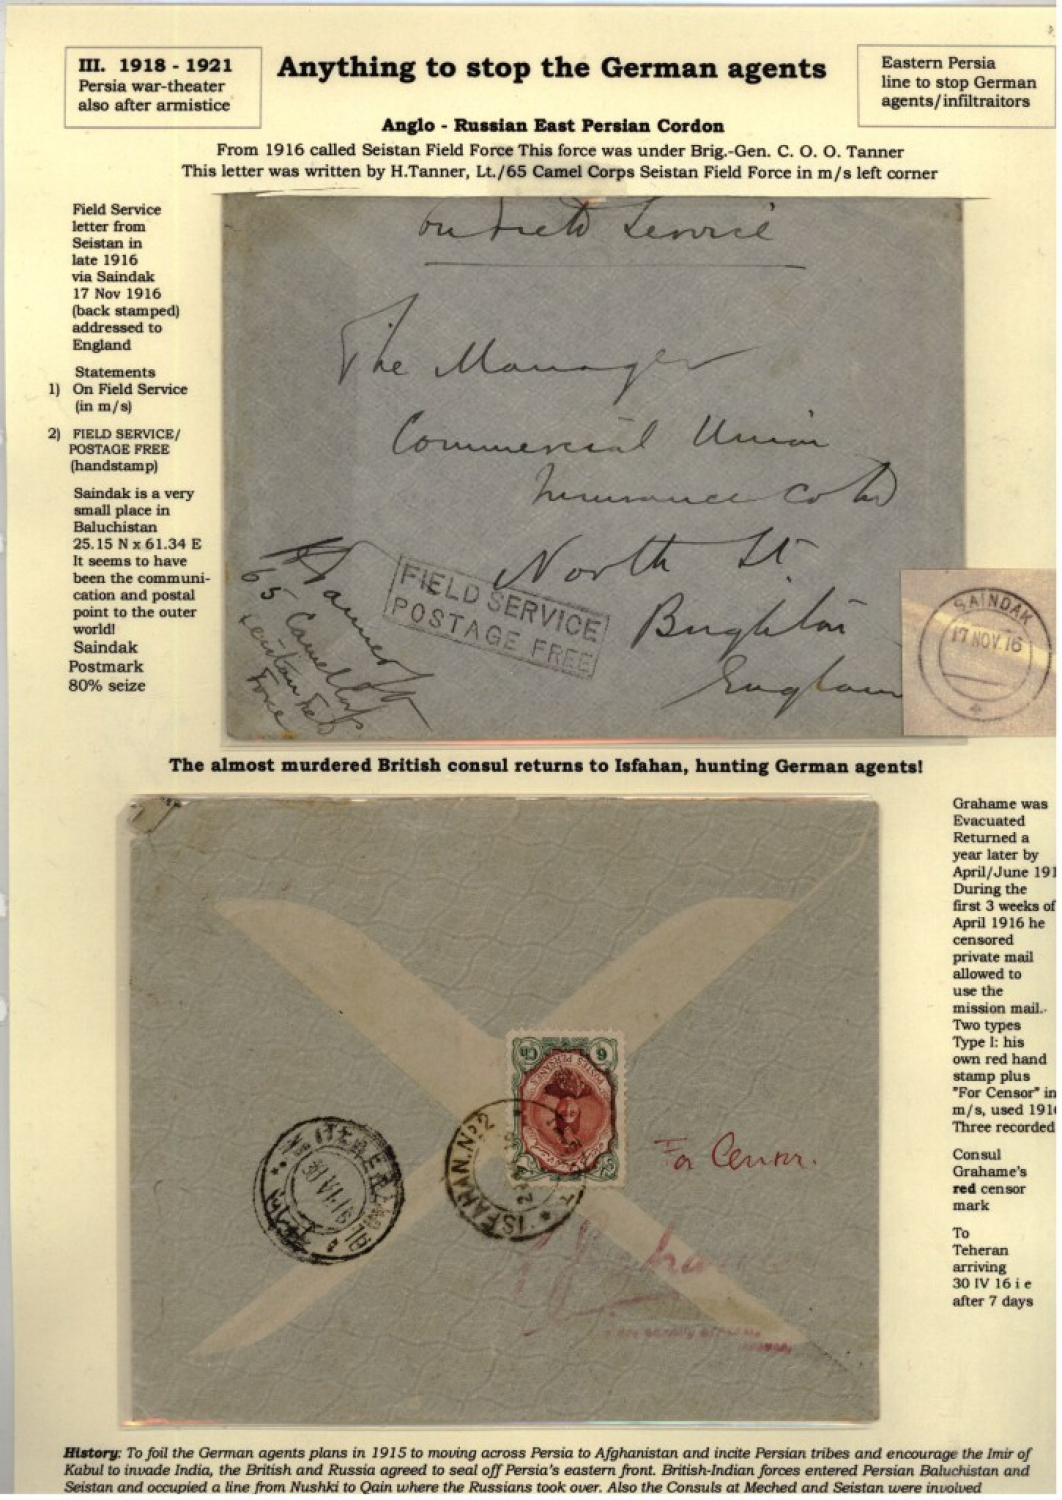 III. 1918 - 1921
Persia war-theater
also after armistice
Anything to stop the German agents
Eastern Persia
line to stop German
agents/infiltraitors
Anglo - Russian East Persian Cordon
From 1916 called Seistan Field Force This force was under Brig.-Gen. C. O. O. Tanner
This letter was written by H.Tanner, Lt./65 Camel Corps Seistan Field Force in m/s left corner
Field Service
letter from
Seistan in
late 1916
via Saindak
17 Nov 1916
(back stamped)
addressed to
England
Statements
1) On Field Service
(in m/s)
2) FIELD SERVICE/
POSTAGE FREE
(handstamp)
Saindak is a very
small place in
Baluchistan
25.15 N x 61.34 E
It seems to have
been the communi-
cation and postal
point to the outer
world!
Saindak
Postmark
80% seize
On Field Service
The Manager
Commercial Union
Insurance Co Ltd
North St.
Brighton
England
FIELD SERVICE
POSTAGE FREE
HTanner Lt
65 Camel Corps
Seistan Field
Force
SAINDAK
17 NOV.16
The almost murdered British consul returns to Isfahan, hunting German agents!
Grahame was
Evacuated
Returned a
year later by
April/June 191
During the
first 3 weeks of
April 1916 he
censored
private mail
allowed to
use the
mission mail..
Two types
Type I: his
own red hand
stamp plus
"For Censor" in
m/s, used 191
Three recorded
Consul
Grahame's
red censor
mark
To
Teheran
arriving
30 IV 16 i e
after 7 days
6 Ch
POSTES PERSANES
ISFAHAN.Nº2
30 VI 16
For Censor.
History: To foil the German agents plans in 1915 to moving across Persia to Afghanistan and incite Persian tribes and encourage the Imir of
Kabul to invade India, the British and Russia agreed to seal off Persia's eastern front. British-Indian forces entered Persian Baluchistan and
Seistan and occupied a line from Nushki to Qain where the Russians took over. Also the Consuls at Meched and Seistan were involved